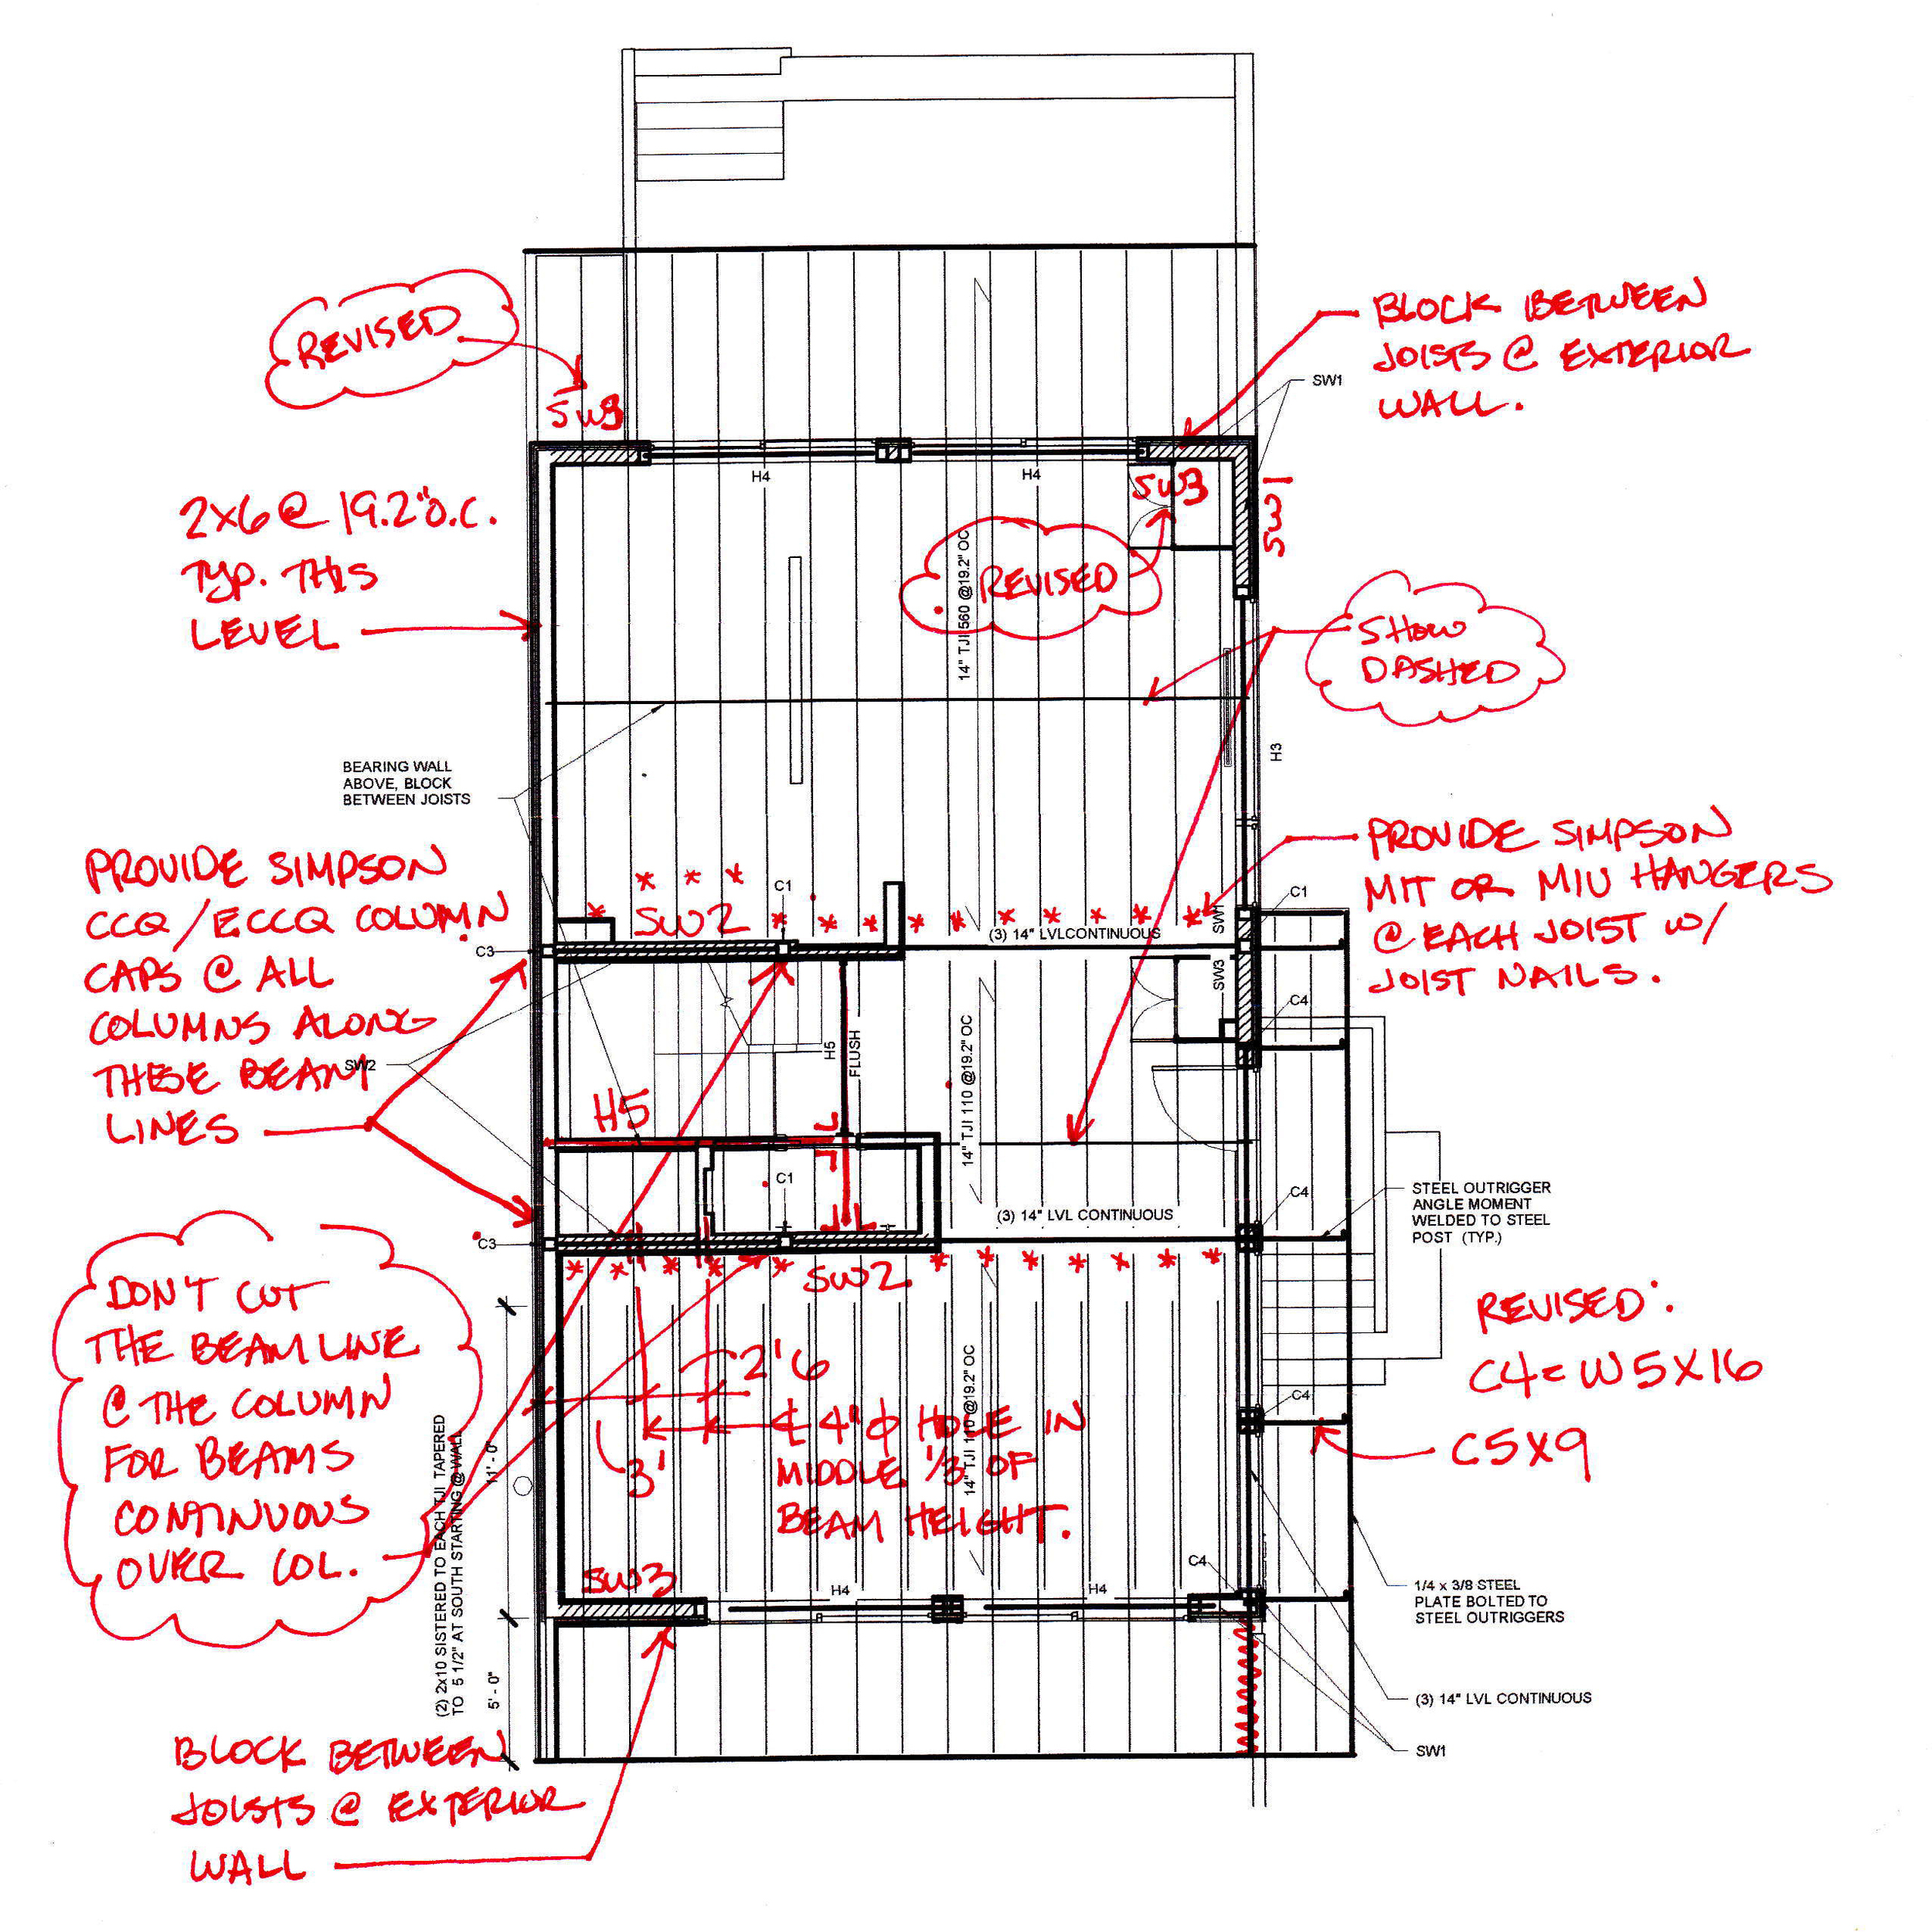 REVISED
SW3
BLOCK BETWEEN
JOISTS @ EXTERIOR
WALL.
SW1
H4
H4
SW3
SW1
2x6 @ 19.2" O.C.
TYP. THIS
LEVEL
14" TJI 560 @19.2" OC
REVISED
SHOW
DASHED
H3
BEARING WALL
ABOVE, BLOCK
BETWEEN JOISTS
PROVIDE SIMPSON
CCQ/ECCQ COLUMN
CAPS @ ALL
COLUMNS ALONG
THESE BEAM
LINES
SW2
C3
* * *
* SW2 * * * * * * * * * *
C1
(3) 14" LVLCONTINUOUS
SW1
C1
PROVIDE SIMPSON
MIT OR MIU HANGERS
@ EACH JOIST W/
JOIST NAILS.
SW3
C4
H5
FLUSH
14" TJI 110 @19.2" OC
H5
C1
(3) 14" LVL CONTINUOUS
C4
STEEL OUTRIGGER
ANGLE MOMENT
WELDED TO STEEL
POST (TYP.)
C3
* * * * * SW2 * * * * * * *
DON'T CUT
THE BEAM LINE
@ THE COLUMN
FOR BEAMS
CONTINUOUS
OVER COL.
REVISED:
C4 = W5X16
C5X9
C4
2'6
3'
℄ 4" φ HOLE IN
MIDDLE 1/3 OF
BEAM HEIGHT.
14" TJI 110 @19.2" OC
(2) 2x10 SISTERED TO EACH TJI TAPERED
TO 5 1/2" AT SOUTH STARTING @ WALL
11' - 0"
5' - 0"
SW3
H4
H4
C4
1/4 x 3/8 STEEL
PLATE BOLTED TO
STEEL OUTRIGGERS
(3) 14" LVL CONTINUOUS
SW1
BLOCK BETWEEN
JOISTS @ EXTERIOR
WALL